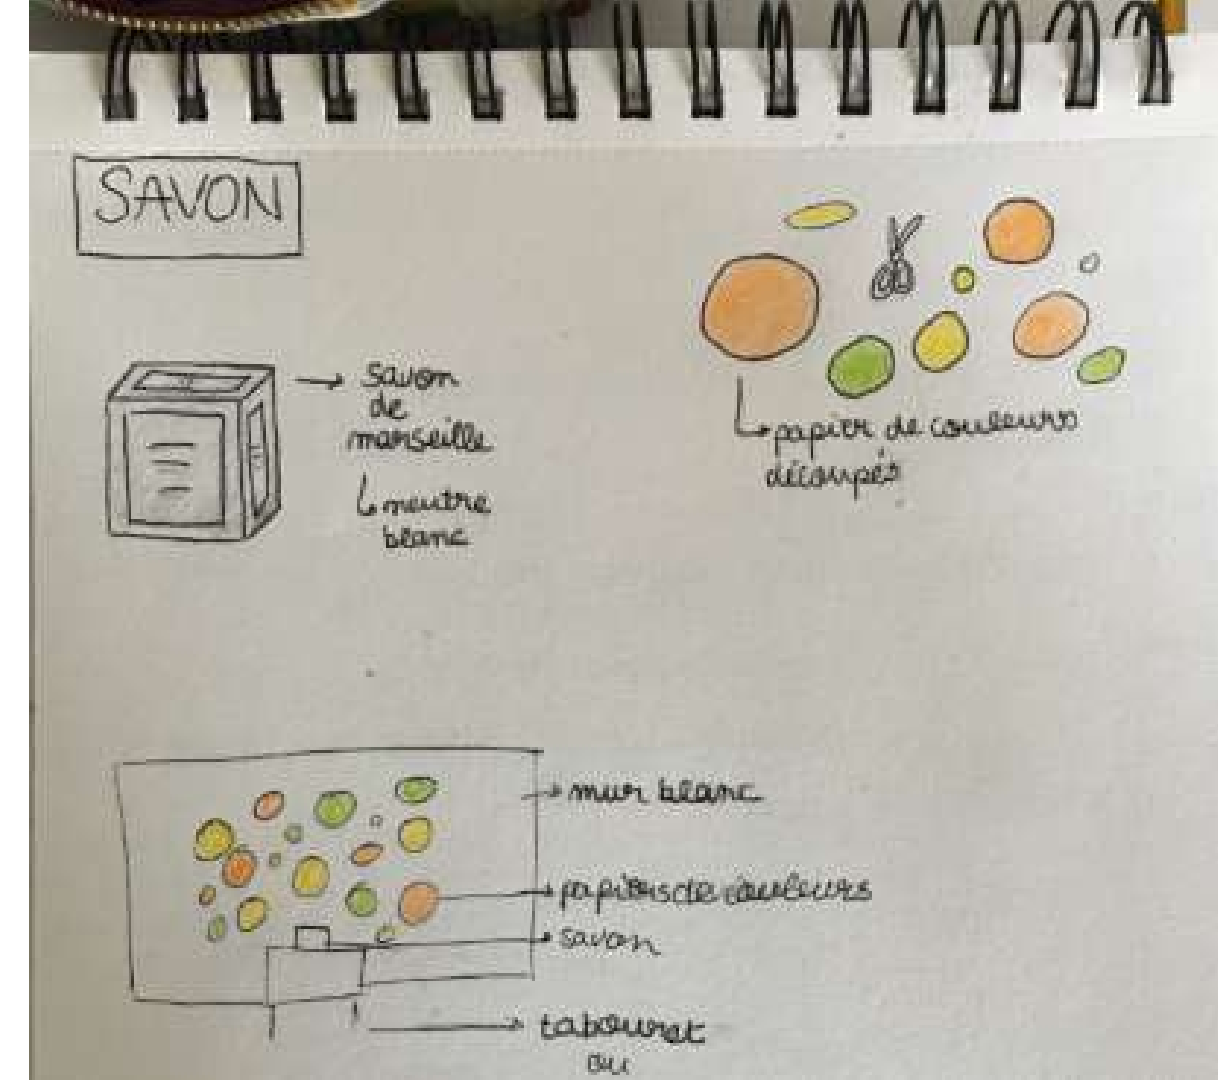 SAVON
savon
de
marseille
neutre
blanc
papier de couleurs
découpés
mur blanc
papiers de couleurs
savon
tabouret
ou